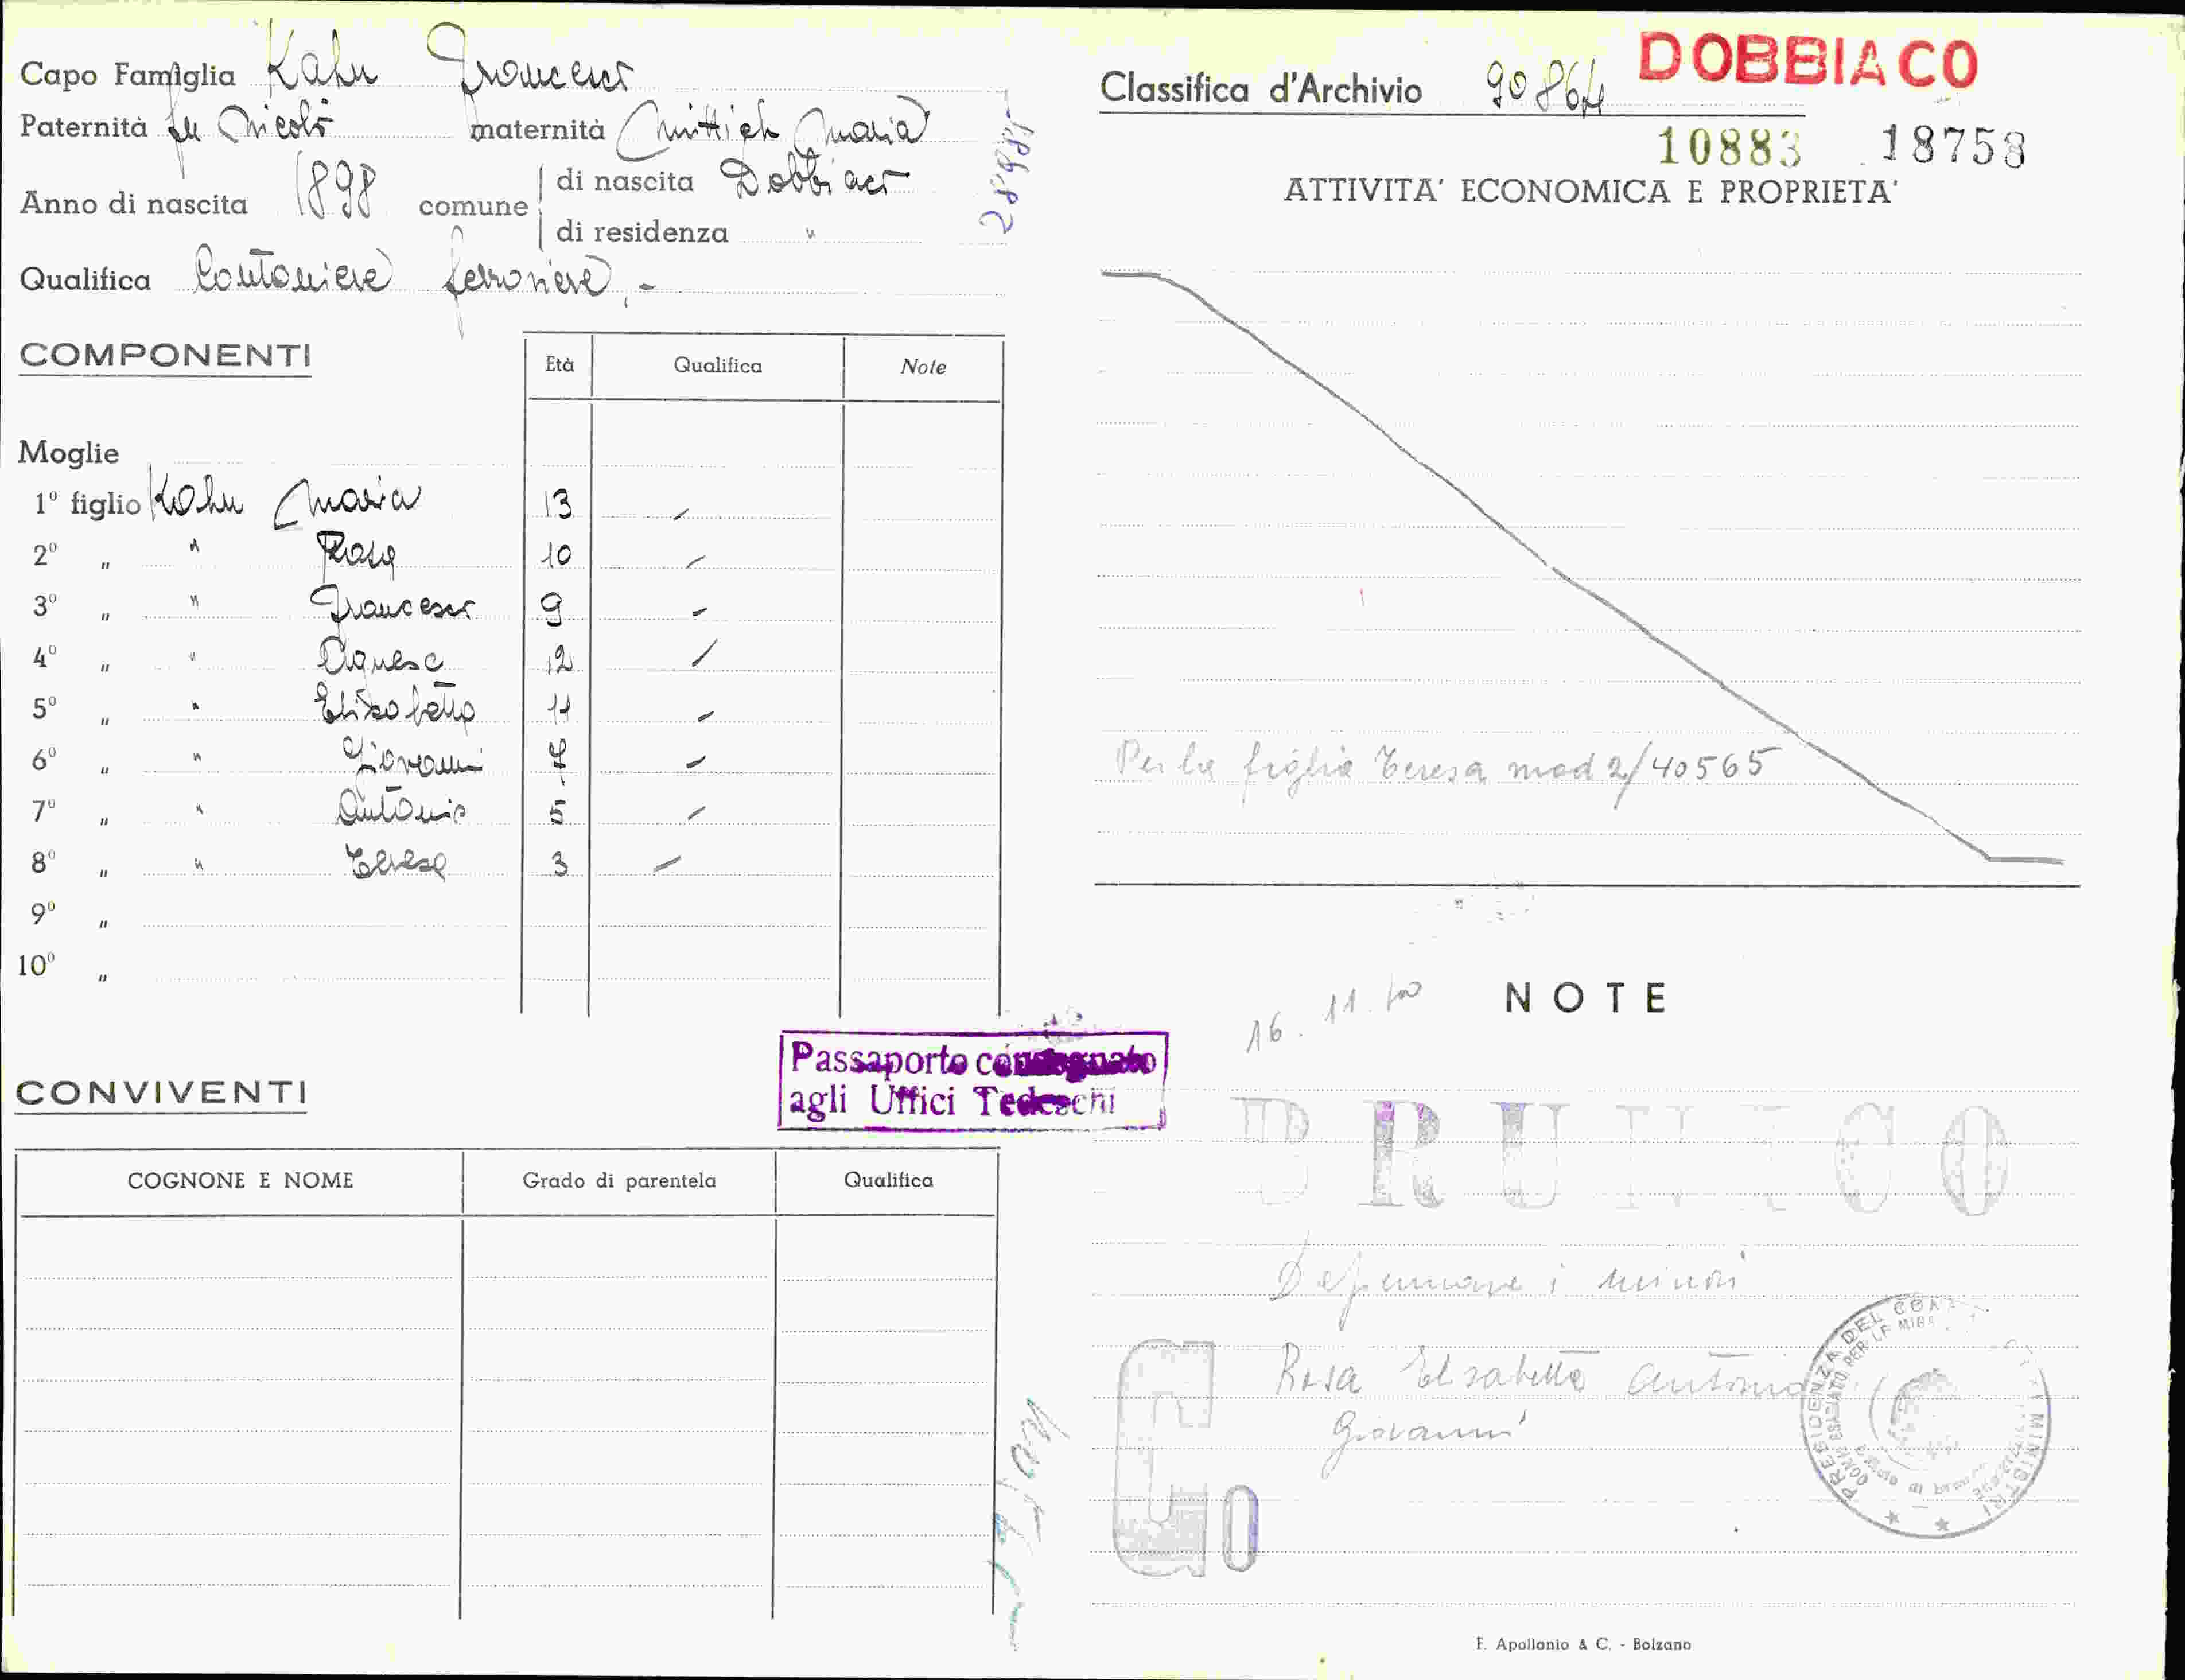 Capo Famiglia Kahn Francesco
Paternità fu Nicolò maternità Mittich Maria
Anno di nascita 1898 comune di nascita Dobbiaco
di residenza "
Qualifica Cantoniere ferroviere.-
COMPONENTI
Età Qualifica Note
Moglie
1º figlio Kahn Maria 13 -
2º " " Rosa 10 -
3º " " Francesco 9 -
4º " " Agnese 12 -
5º " " Elisabetta 11 -
6º " " Giovanni 7 -
7º " " Antonio 5 -
8º " " Teresa 3 -
9º "
10º "
Passaporto consegnato
agli Uffici Tedeschi
CONVIVENTI
COGNONE E NOME Grado di parentela Qualifica
DOBBIACO
Classifica d'Archivio 90864
10883 18758
ATTIVITA' ECONOMICA E PROPRIETA'
Per la figlia Teresa mod 2/40565
NOTE
16. 11.
BRUNICO
Depennare i minori
Rosa Elisabetta Antonio
Giovanni
G
O
PRESIDENZA DEL MINISTRI
F. Apollonio & C. - Bolzano